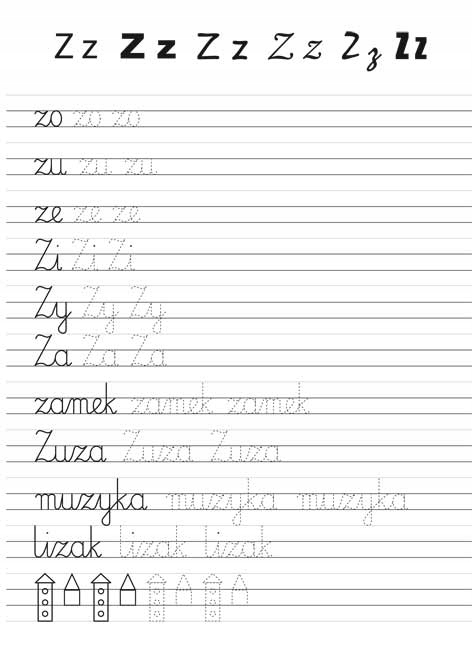 Z z Z z Z z Z z Z z Z z
zo zo zo
zu zu zu
ze ze ze
Zi Zi Zi
Zy Zy Zy
Za Za Za
zamek zamek zamek
Zuza Zuza Zuza
muzyka muzyka muzyka
lizak lizak lizak